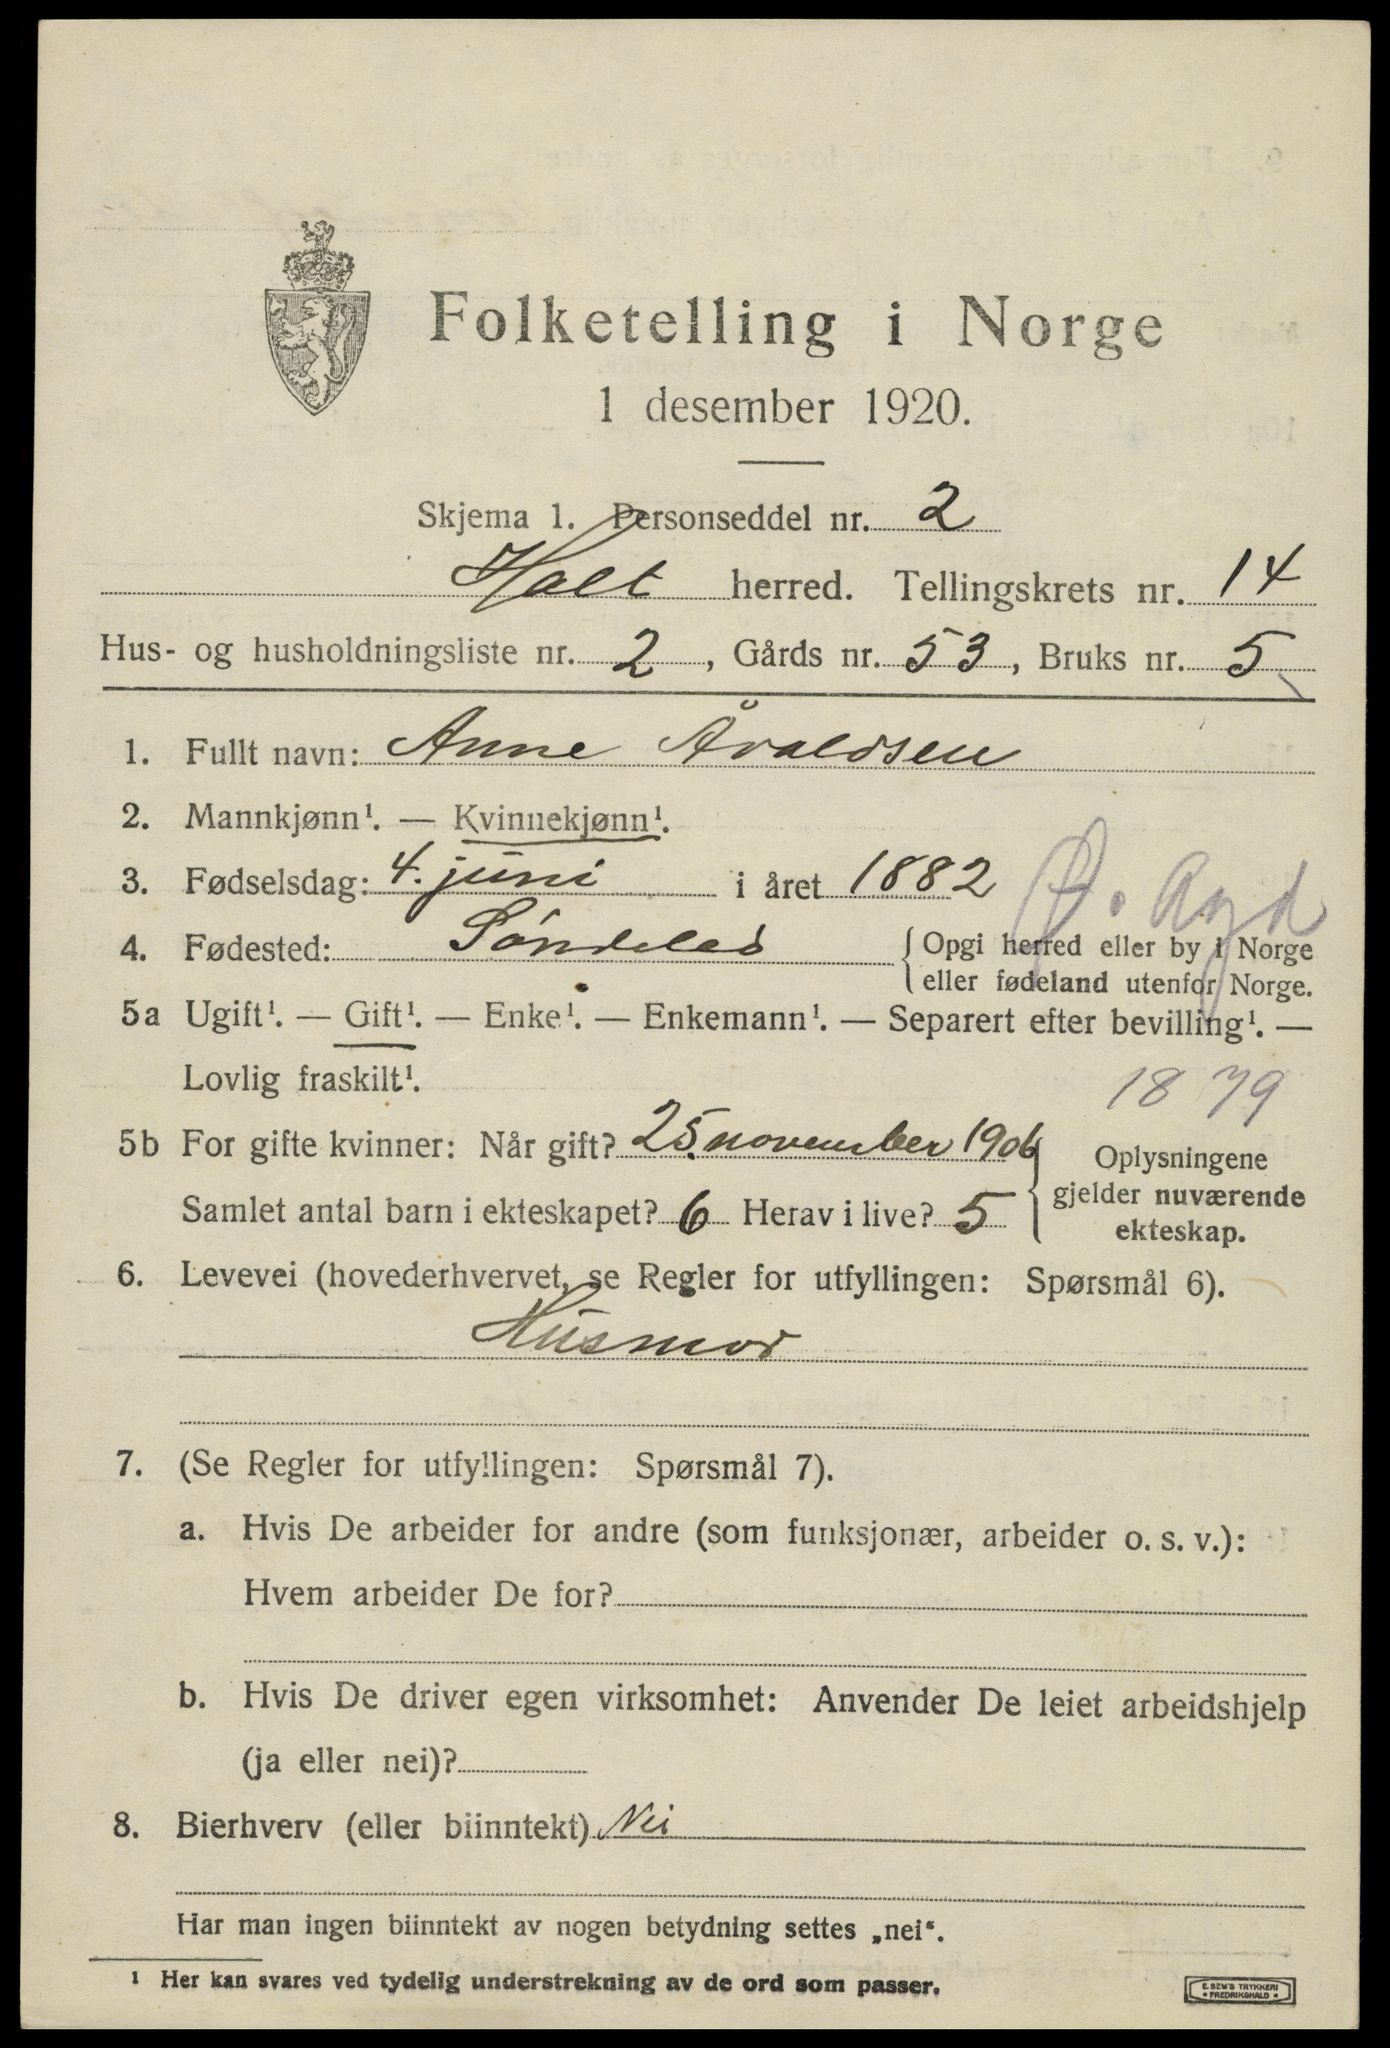 Folketelling i Norge
1 desember 1920.
Skjema 1. Personseddel nr. 2
Holt herred. Tellingskrets nr. 14
Hus- og husholdningsliste nr. 2, Gårds nr. 53, Bruks nr. 5
1. Fullt navn: Anne Åvaldsen
2. Mannkjønn¹. — Kvinnekjønn¹.
3. Fødselsdag: 4. juni i året 1882
Ø. Agd
4. Fødested: Søndeled { Opgi herred eller by i Norge
eller fødeland utenfor Norge.
5a Ugift¹. — Gift¹. — Enke¹. — Enkemann¹. — Separert efter bevilling¹. —
Lovlig fraskilt¹.
1879
5b For gifte kvinner: Når gift? 25. november 1906 { Oplysningene
gjelder nuværende
ekteskap.
Samlet antal barn i ekteskapet? 6 Herav i live? 5
6. Levevei (hovederhvervet, se Regler for utfyllingen: Spørsmål 6).
Husmor
7. (Se Regler for utfyllingen: Spørsmål 7).
a. Hvis De arbeider for andre (som funksjonær, arbeider o. s. v.):
Hvem arbeider De for?
b. Hvis De driver egen virksomhet: Anvender De leiet arbeidshjelp
(ja eller nei)?
8. Bierhverv (eller biinntekt) Nei
Har man ingen biinntekt av nogen betydning settes „nei“.
1 Her kan svares ved tydelig understrekning av de ord som passer.
E. SEM'S TRYKKERI
• FREDRIKSHALD •